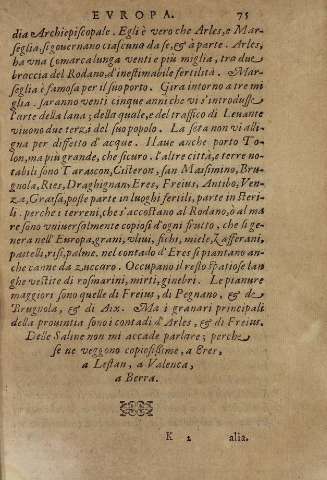 EVROPA. 75
dia Archiepiscopale. Egli è vero che Arles, e Mar-
seglia si gouernano ciascuna da se, & à parte. Arles,
ha vna Comarca lunga venti e più miglia, tra due
braccia del Rodano, d'inestimabile fertilità. Mar-
seglia è famosa per il suo porto. Gira intorno a tre mi
glia. saranno venti cinque anni che vi s'introdusse
l'arte della lana; della quale, e del traffico di Leuante
viuono due terzi del suo popolo. La seta non vi alli
gna per diffetto d'acque. Haue anche porto To-
lon, ma più grande, che sicuro. l'altre città, e terre no-
tabili sono Tarascon, Cisteron, san Massimino, Bru-
gnola, Ries, Draghignan, Eres, Freius, Antibo, Ven-
za, Grassa, poste parte in luoghi fertili, parte in steri-
li. perche i terreni, che s'accostano al Rodano, ò al ma
re sono vniuersalmente copiosi d'ogni frutto, che si ge
nera nell'Europa, grani, vliui, fichi, miele, zafferani,
pastelli, risi, palme. nel contado d'Eres si piantano an-
che canne da zuccaro. Occupano il resto spatiose lan
ghe vestite di rosmarini, mirti, ginebri. Le pianure
maggiori sono quelle di Freius, di Pegnano, & de
Brugnola, & di Aix. Ma i granari principali
della prouintia sono i contadi d'Arles, & di Freius.
Delle Saline non mi accade parlare; perche
se ne veggono copiosissime, a Eres,
a Lestan, a Valenca,
a Berra.
K 2 alia.